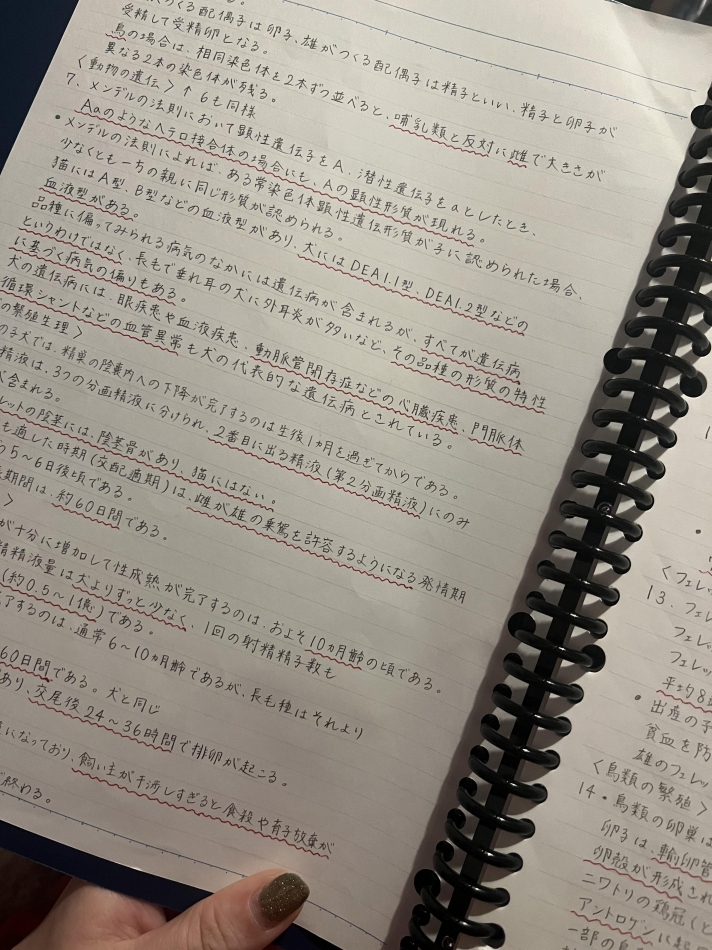 つくる配偶子は卵子、雄がつくる配偶子は精子といい、精子と卵子が
受精して受精卵となる。
鳥の場合は、相同染色体を2本ずつ並べると、哺乳類と反対に雌で大きさが
異なる2本の染色体が残る。
〈動物の遺伝〉↑6も同様
7. メンデルの法則において顕性遺伝子をA、潜性遺伝子をaとしたとき、
Aaのようなヘテロ接合体の場合にも、Aの顕性形質が現れる。
・メンデルの法則によれば、ある常染色体顕性遺伝形質が子に認められた場合、
少なくとも一ちの親に同じ形質が認められる。
猫にはA型、B型などの血液型があり、犬にはDEA1.1型、DEA1.2型などの
血液型がある。
品種に偏ってみられる病気のなかには遺伝病が含まれるが、すべてが遺伝病
というわけではなく、長毛で垂れ耳の犬に外耳炎が多いなど、その品種の形質の特性
に基づく病気の偏りもある。
犬の遺伝病には、眼疾患や血液疾患、動脈管開存症などの心臓疾患、門脈体
循環シャントなどの血管異常も犬の代表的な遺伝病とされている。
の繁殖生理〉
の子犬では、精巣の陰嚢内への下降が完了するのは生後1ヵ月を過ぎてからである。
精液は、3つの分画精液に分けられ、2番目に出る精液(第2分画精液)にのみ
含まれる。
レットの陰茎には、陰茎骨があり、猫にはない。
も適した時期(交配適期)は、雌が雄の乗駕を許容するようになる発情期
5〜6日後頃である。
期間は、約60日間である。
〉
が十分に増加して性成熟が完了するのは、およそ10ヵ月齢の頃である。
精精液量は犬よりずっと少なく、1回の射精精子数も
(約0.5〜1億)である。
了するのは、通常6〜10ヵ月齢であるが、長毛種はそれより
60日間である。犬と同じ
あり、交尾後24〜36時間で排卵が起こる。
になっており、飼い主が干渉しすぎると食殺や育子放棄が
終わる。
〈フェレッ
13. フェレ
フェレッ
フェレッ
平均8
・出産の子
貧血を防
雄のフェレッ
〈鳥類の繁殖〉
14・鳥類の卵巣は
卵子は、輸卵管
卵殻が形成され
ニワトリの鶏冠(と
アンドロゲンに
一部の鳥